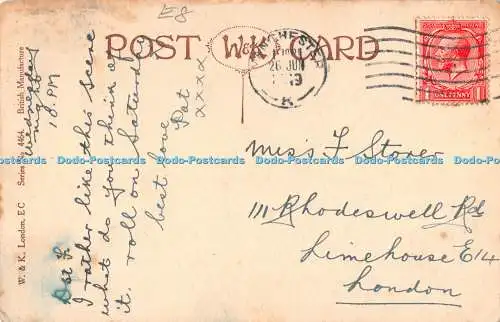 E8
POST CARD
W&K
MANCHESTER
26 JUN
K
ONE PENNY
W. & K. London, EC Series No. 4464. British Manufacture
Wednesday
18. PM
Dst F
I rather like this scene
what do you think of
it. roll on Saturday
best love
Pat
xxxx
Miss F Stover
111 Rhodeswell Rd
Limehouse E14
London
Dodo-Postcards Dodo-Postcards Dodo-Postcards Dodo-Postcards Dodo-Postcards